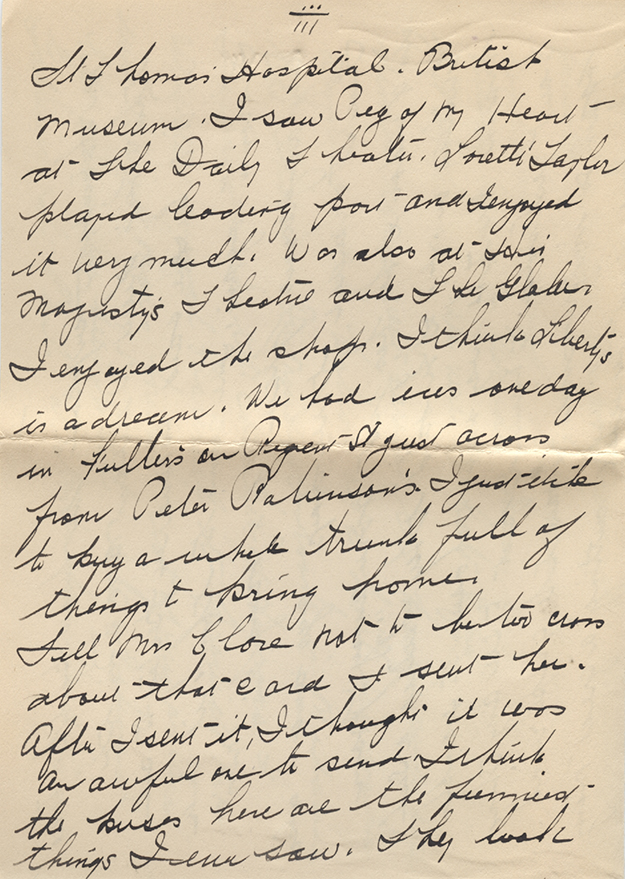 iii
St Thomas Hospital. British
Museum. I saw Peg of My Heart
at The Daily Theatre. Loretti Taylor
played leading part and I enjoyed
it very much. Was also at His
Majesty's Theatre and The Globe.
I enjoyed the shops. I think Liberty's
is a dream. We had ices one day
in Fuller's on Regent St just across
from Peter Robinson's. I just
to buy a whole trunk full of
things to bring home.
Tell Mrs Clore not to be too cross
about that card I sent her.
After I sent it, I thought it was
an awful one to send. I think
the buses here are the funniest
things I ever saw. They look